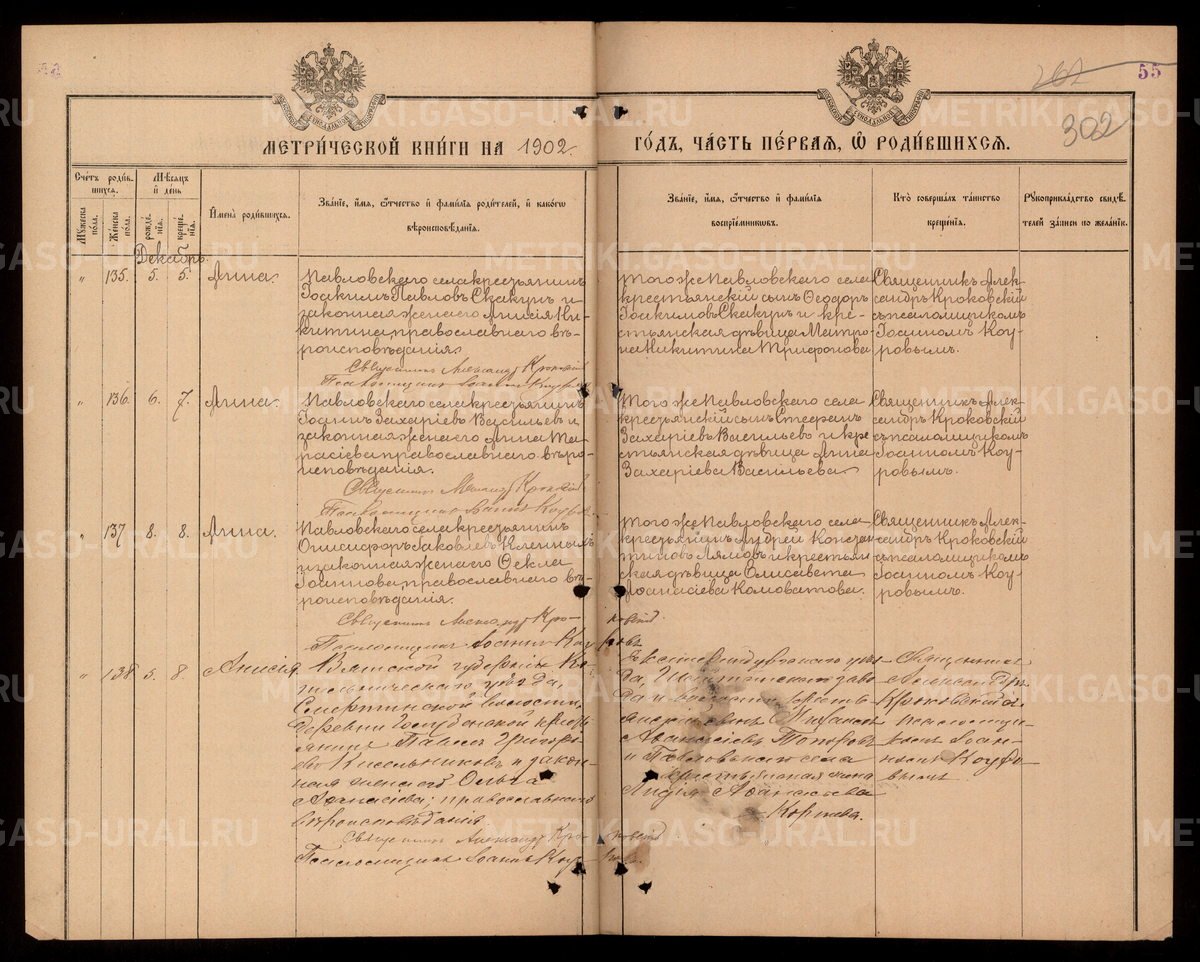 55
302
МЕТРИ́ЧЕСКОЙ КНИ́ГИ НА 1902.
ГО́ДЪ, ЧА́СТЬ ПЕ́РВАѦ, Ѡ҆ РОДИ́ВШИХСѦ.
Сче́тъ роди́вшихся.
Мѣ́сяцъ и҆ де́нь
Мꙋ́жеска по́ла.
Же́нска по́ла.
рожде́нїѧ.
креще́нїѧ.
И҆мена̀ роди́вшихсѧ.
Зва́нїе, и҆́мѧ, ѻ҆́тчество и҆ фамі́лїѧ роди́телей, и҆ како́гѡ
вѣроисповѣ́данїѧ.
Зва́нїе, и҆́мѧ, ѻ҆́тчество и҆ фамі́лїѧ
воспрїе́мникѡвъ.
Кто̀ соверша́лъ та́инство
креще́нїѧ.
Рꙋкоприкла́дство свидѣ́
телей за́писи по жела́нїю.
Декабрь.
" 135. 5. 5. Анна.
Павловскаго села крестьянинъ
Іоакимъ Павловъ Скакунъ и
законная жена его Анисія Ни-
китина, православнаго вѣ-
роисповѣданія.
Священникъ Александръ Кроковскій
Псаломщикъ Іоаннъ Коуровъ
того же Павловскаго села
крестьянскій сынъ Ѳеодоръ
Іоакимовъ Скакунъ и кре-
стьянская дѣвица Матро-
на Никитина Трифонова
Священникъ Алек-
сандръ Кроковскій
съ псаломщикомъ
Іоанномъ Коу-
ровымъ.
" 136. 6. 7. Анна.
Павловскаго села крестьянинъ
Іоаннъ Захаріевъ Васильевъ и
законная жена его Анна Та-
расіева православнаго вѣро-
исповѣданія.
Священникъ Александръ Кроковскій
Псаломщикъ Іоаннъ Коуровъ
Того же Павловскаго села
крестьянскій сынъ Стефанъ
Захаріевъ Васильевъ и кре
стьянская дѣвица Анна
Захаріева Васильева
Священникъ Алек-
сандръ Кроковскій
съ псаломщикомъ
Іоанномъ Коу-
ровымъ.
" 137 8. 8. Анна.
Павловскаго села крестьянинъ
Онисифоръ Іаковлевъ
и законная жена его Ѳекла
Іоаннова, православнаго вѣ-
роисповѣданія.
Священникъ Александръ Кроковскій.
Псаломщикъ Іоаннъ Коуровъ
того же Павловскаго села
крестьянинъ Андрей Констан
тиновъ Лямовъ и крестьян
ская дѣвица Елисавета
Аѳанасіева Комоватова.
Священникъ Алек-
сандръ Кроковскій
съ псаломщикомъ
Іоанномъ Коу-
ровымъ.
" 138 5. 8. Анисія
Вятской губерніи Ко-
тельническаго уѣзда,
волости,
деревни кресть
янинъ Павелъ Григорь-
евъ Кисельниковъ и закон
ная жена его Ольга
Аѳанасіева, православнаго
вѣроисповѣданія.
Священникъ Александръ Кроковскій
Псаломщикъ Іоаннъ Коуровъ.
Екатеринбургскаго уѣз
да, заво
да и волости
сынъ Михаилъ
Аѳанасіевъ Топоровъ
и Павловскаго села
жена
Лидія Аѳанасіева
Священникъ
Александръ
Кроковскій съ
псаломщи-
комъ Іоан-
номъ Коуро
вымъ